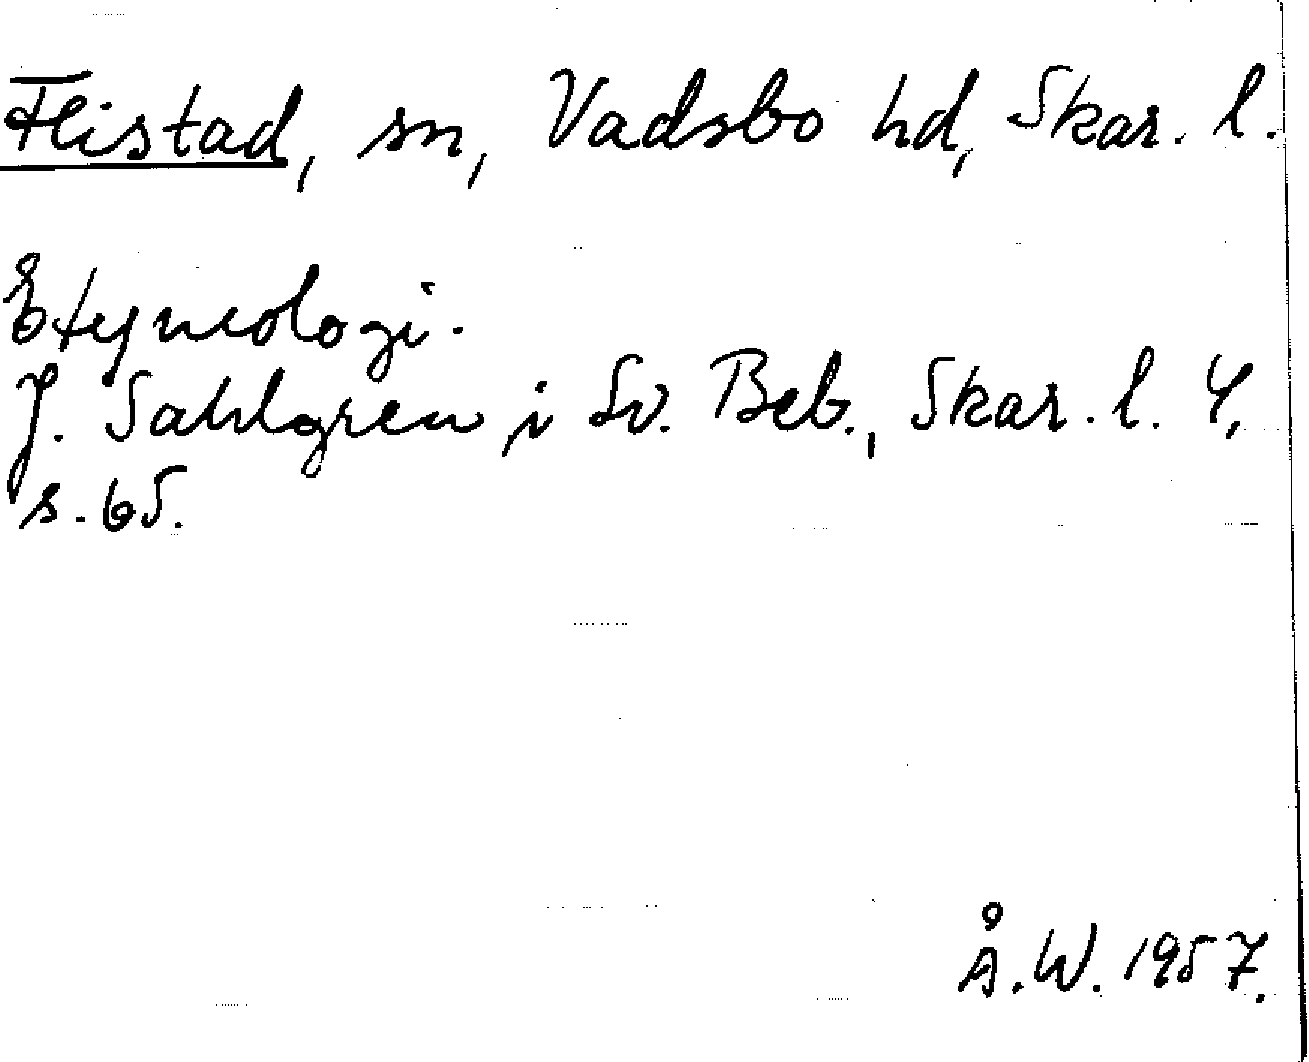 Flistad, sn, Vadsbo hd, Skar. l.
Etymologi.
J. Sahlgren i Sv. Beb., Skar. l. 4,
s. 65.
Å. W. 1957.